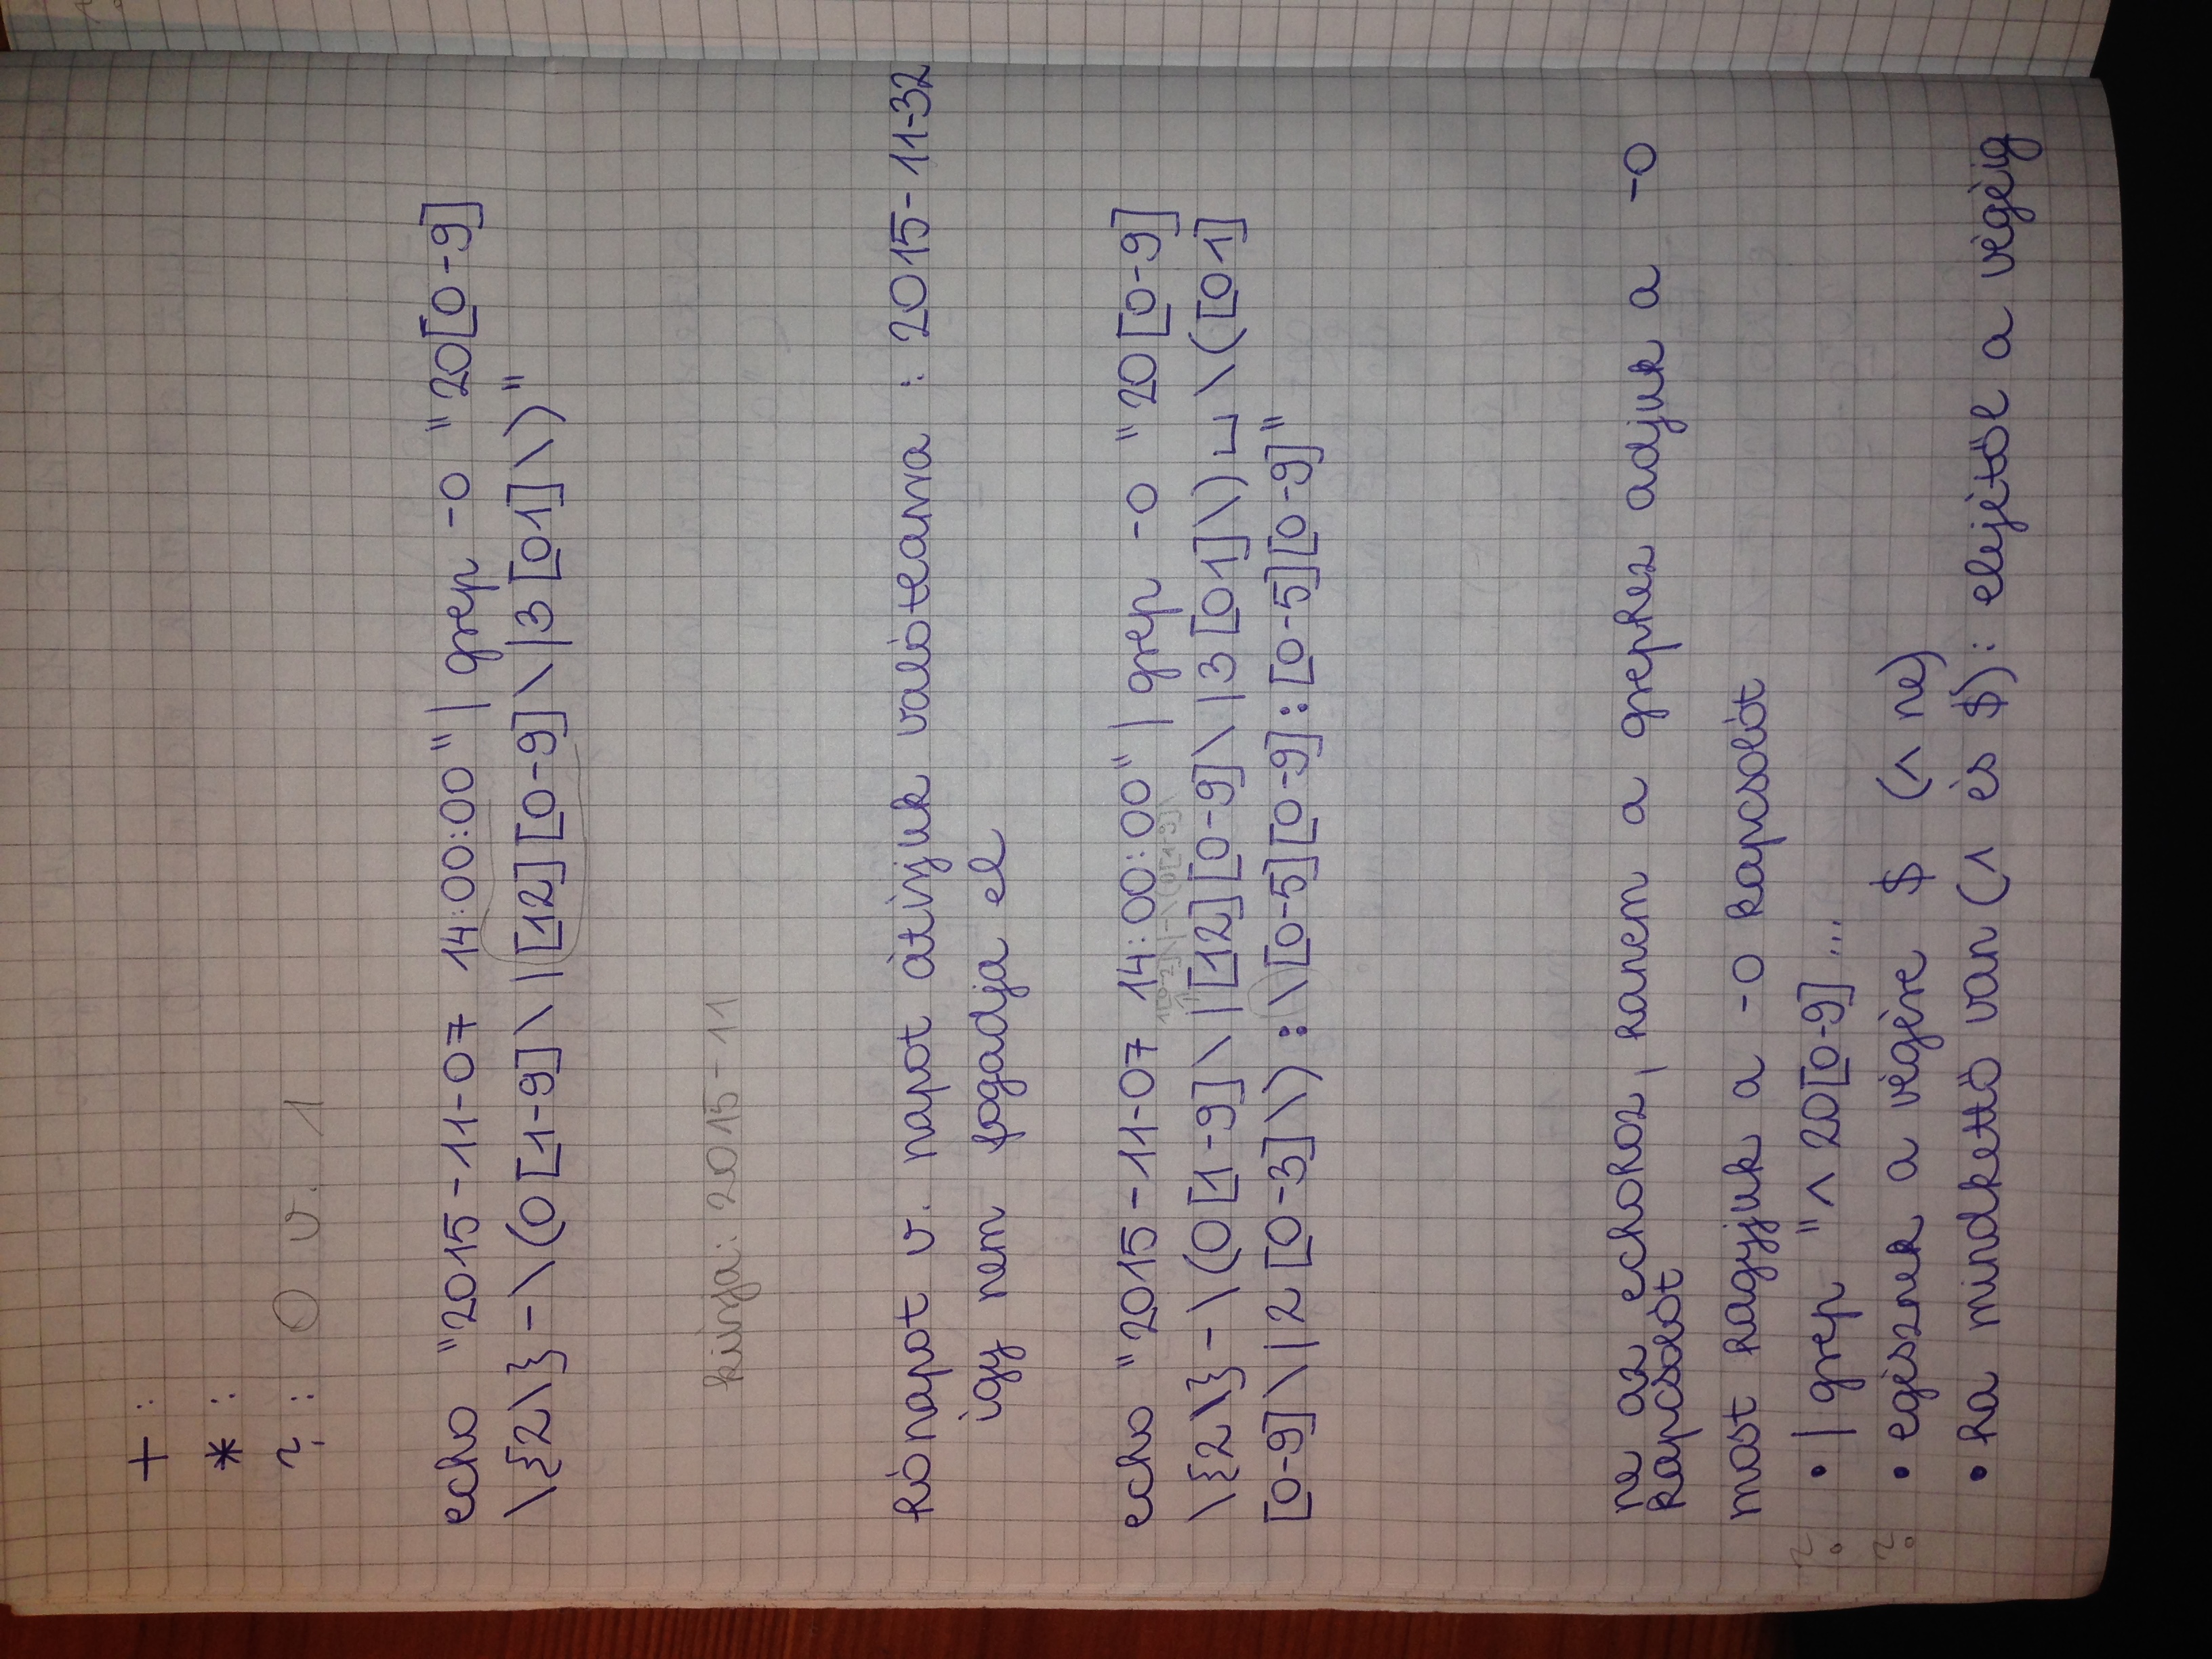 + :
* :
? : 0 v. 1
echo "2015-11-07 14:00:00" | grep -o "20[0-9]
\{2\}-\(0[1-9]\|[12][0-9]\|3[01]\)"
kiírja: 2015-11
hónapot v. napot átírjuk valótlanra : 2015-11-32
így nem fogadja el
echo "2015-11-07 14:00:00" | grep -o "20[0-9]
\{2\}-\(0[1-9]\|[12][0-9]\|3[01]\)⎵\([01]
[0-9]\|2[0-3]\):\[0-5][0-9]:[0-5][0-9]"
ne az echohoz, hanem a grephez adjuk a -o
kapcsolót
most hagyjuk a -o kapcsolót
? • | grep "^20[0-9]...
? • egésznek a végére $ (^ ne)
• ha mindkettő van (^ és $): elejétől a végéig